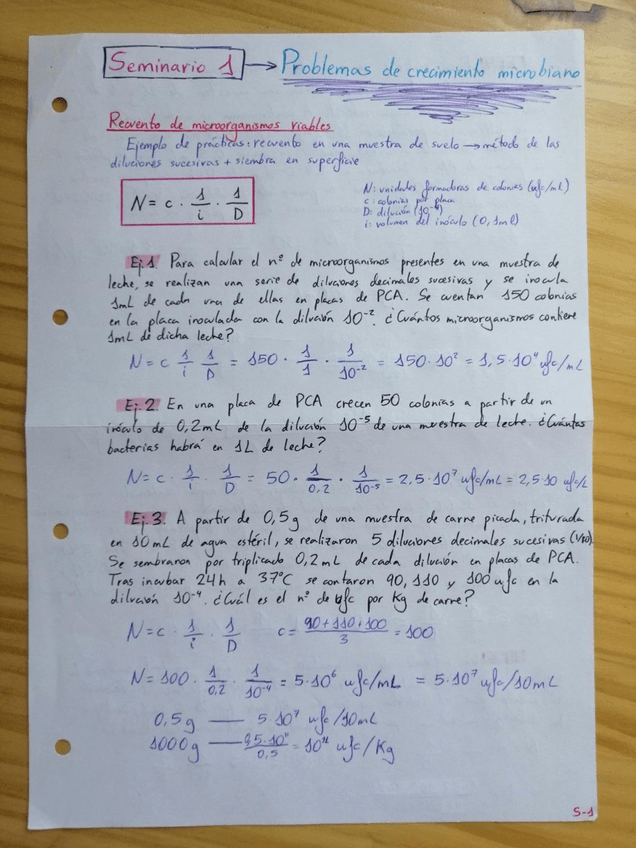 Seminario 1 → Problemas de crecimiento microbiano
Recuento de microorganismos viables
Ejemplo de prácticas: recuento en una muestra de suelo → método de las
diluciones sucesivas + siembra en superficie
N = c · 1/i · 1/D
N: unidades formadoras de colonias (ufc/mL)
c: colonias por placa
D: dilución (10⁻ⁿ)
i: volumen del inóculo (0,1ml)
Ej.1. Para calcular el nº de microorganismos presentes en una muestra de
leche, se realizan una serie de diluciones decimales sucesivas y se inocula
1mL de cada una de ellas en placas de PCA. Se cuentan 150 colonias
en la placa inoculada con la dilución 10⁻². ¿Cuántos microorganismos contiene
1mL de dicha leche?
N = c 1/i 1/D = 150 · 1/1 · 1/10⁻² = 150·10² = 1,5·10⁴ ufc/mL
Ej.2. En una placa de PCA crecen 50 colonias a partir de un
inóculo de 0,2mL de la dilución 10⁻⁵ de una muestra de leche. ¿Cuántas
bacterias habrá en 1L de leche?
N = c · 1/i · 1/D = 50 · 1/0,2 · 1/10⁻⁵ = 2,5·10⁷ ufc/mL = 2,5·10 ufc/L
Ej.3. A partir de 0,5g de una muestra de carne picada, triturada
en 10mL de agua estéril, se realizaron 5 diluciones decimales sucesivas (1/10).
Se sembraron por triplicado 0,2mL de cada dilución en placas de PCA.
Tras incubar 24h a 37°C se contaron 90, 110 y 100 ufc en la
dilución 10⁻⁴. ¿Cuál es el nº de ufc por Kg de carne?
N = c · 1/i · 1/D c = 90+110+100/3 = 100
N = 100 · 1/0,2 · 1/10⁻⁴ = 5·10⁶ ufc/mL = 5·10⁷ ufc/10mL
0,5g — 5·10⁷ ufc/10mL
1000g — /0,5 = 10¹¹ ufc/Kg
S-1